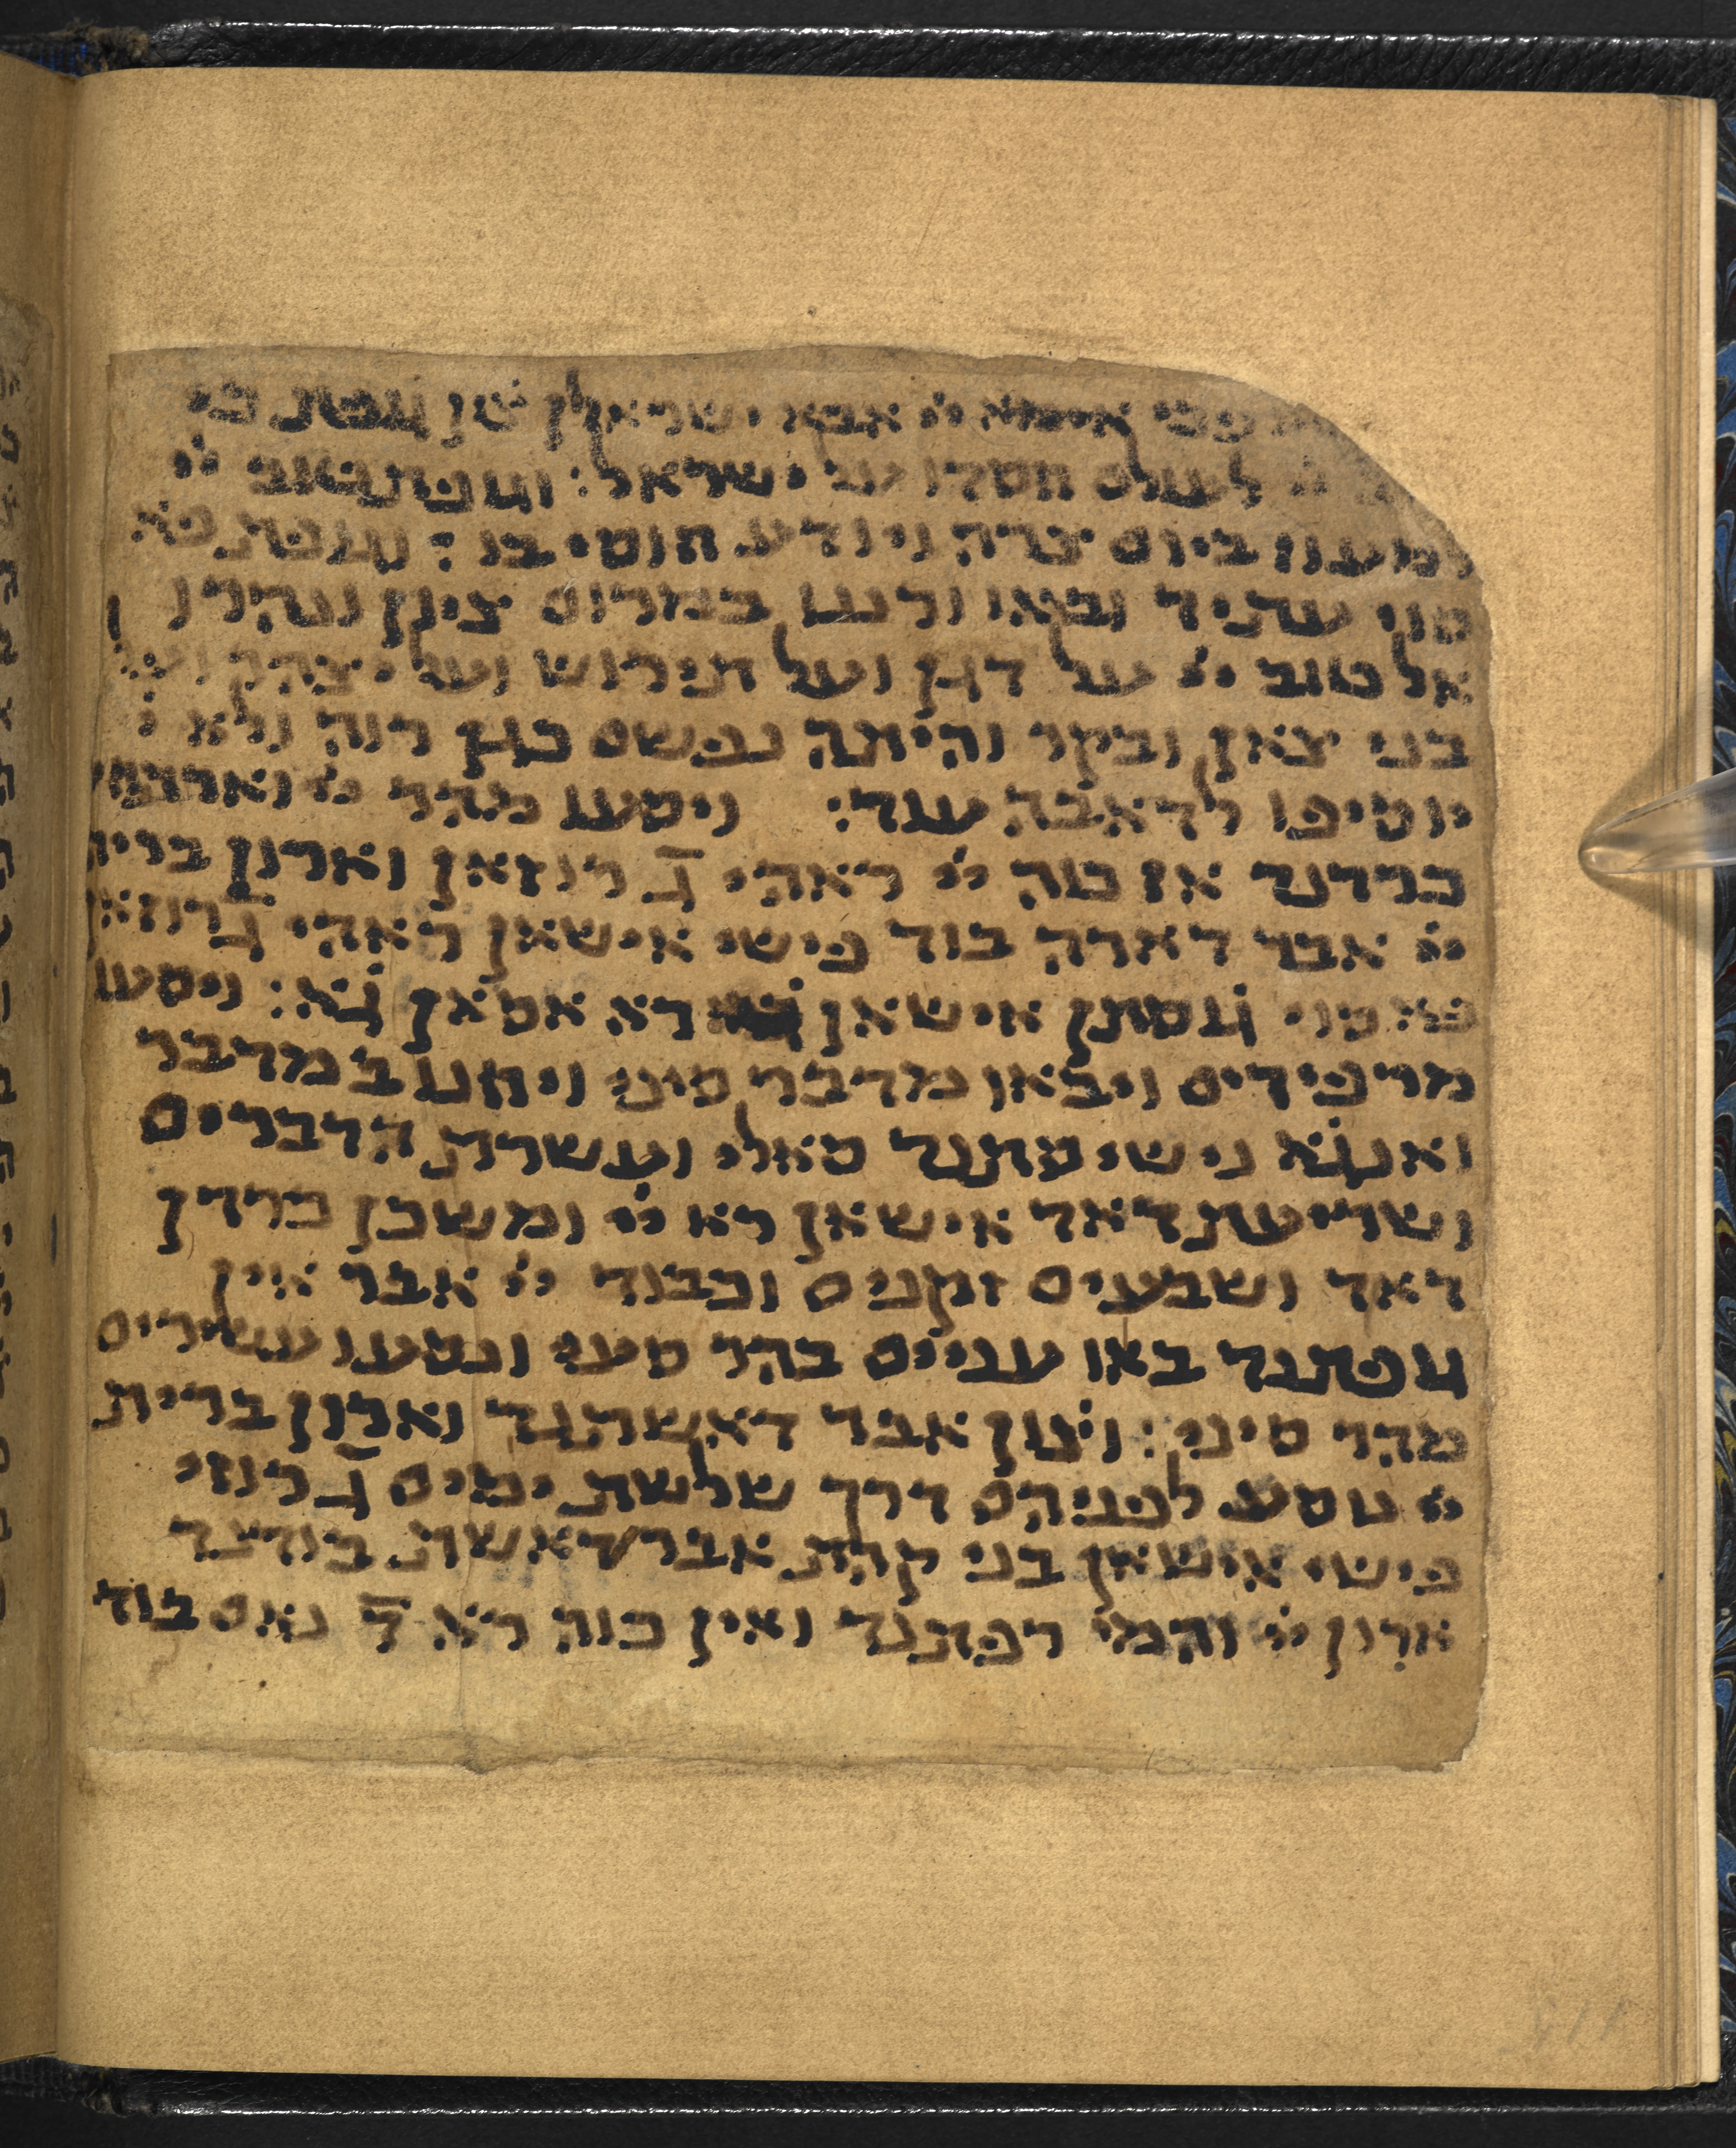 ישראל גופת כי
לעולם חסדו על ישראל: וגופת טוב ייי
למעוז ביום צרה ויודע חוסי בו: וגופת
סוי עתיד ובאו ורננו במרום ציון ונהרו
אל טוב ייי על דגן ועל תירוש ועל יצהר ועל
בני צאן ובקר והיתה נפשם כגן רוה ולא י
יוסיפו לדאבה עוד: ויסעו מהר ייי וארון
כרדנד אז כוה ייי ראהי ג רוזאן וארון ברית
ייי אבר דארה בוד פישי אישאן ראהי ג רוזאן
סוי גוסתן אישאן רא אסאן גא: ויסעו
מרפידים ויבאו מדבר סיני ויחנו במדבר
ואנגא נישסתנד סאלי ועשרת הדברים
ושריעת דאד אישאן רא ייי ומשכן כרדן
דאד ושבעים זקנים וכבוד ייי אבר אין
גופתנד באו עניים בהר סיני ונסעו עשירים
מהר סיני: וצון אבר דאשתנד וארון ברית
ייי נוסע לפניהם דרך שלשת ימים ג רוזי
פישי אישאן בני קהת אבר דאשת בודנד
ארון ייי והמי רפתנד ואין כוה רא ד נאם בוד